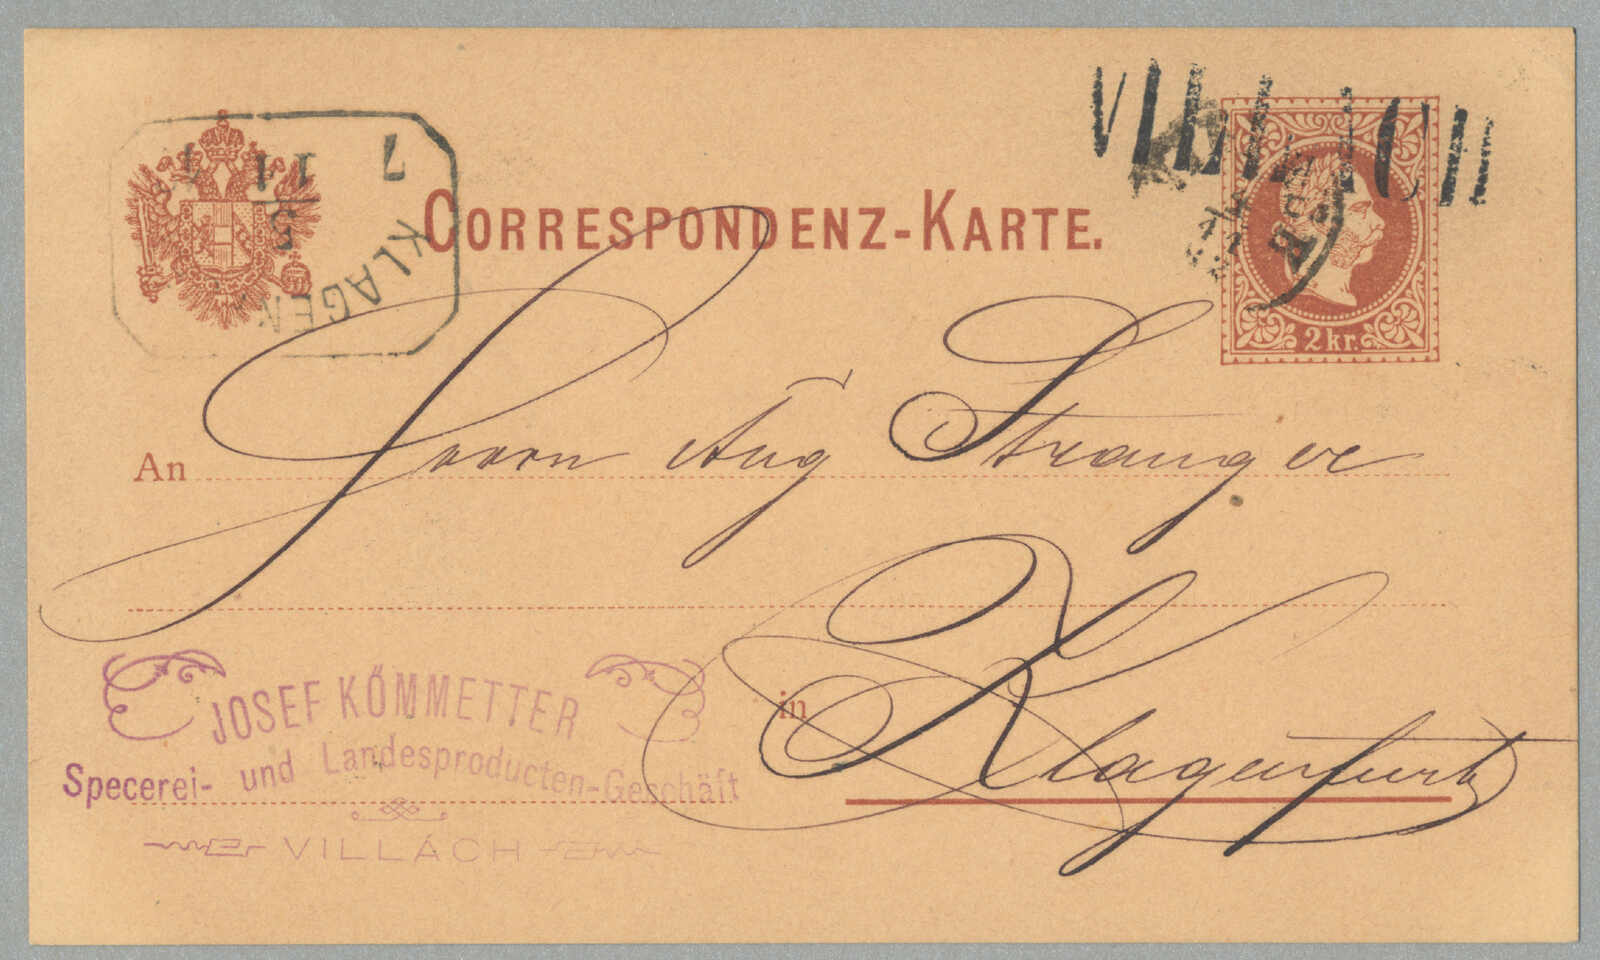 7
11
5
KLAGEN
CORRESPONDENZ-KARTE.
VILLACH
2 kr.
An Herrn Aug Stranger
in Klagenfurt
JOSEF KÖMMETTER
Specerei- und Landesproducten-Geschäft
VILLACH